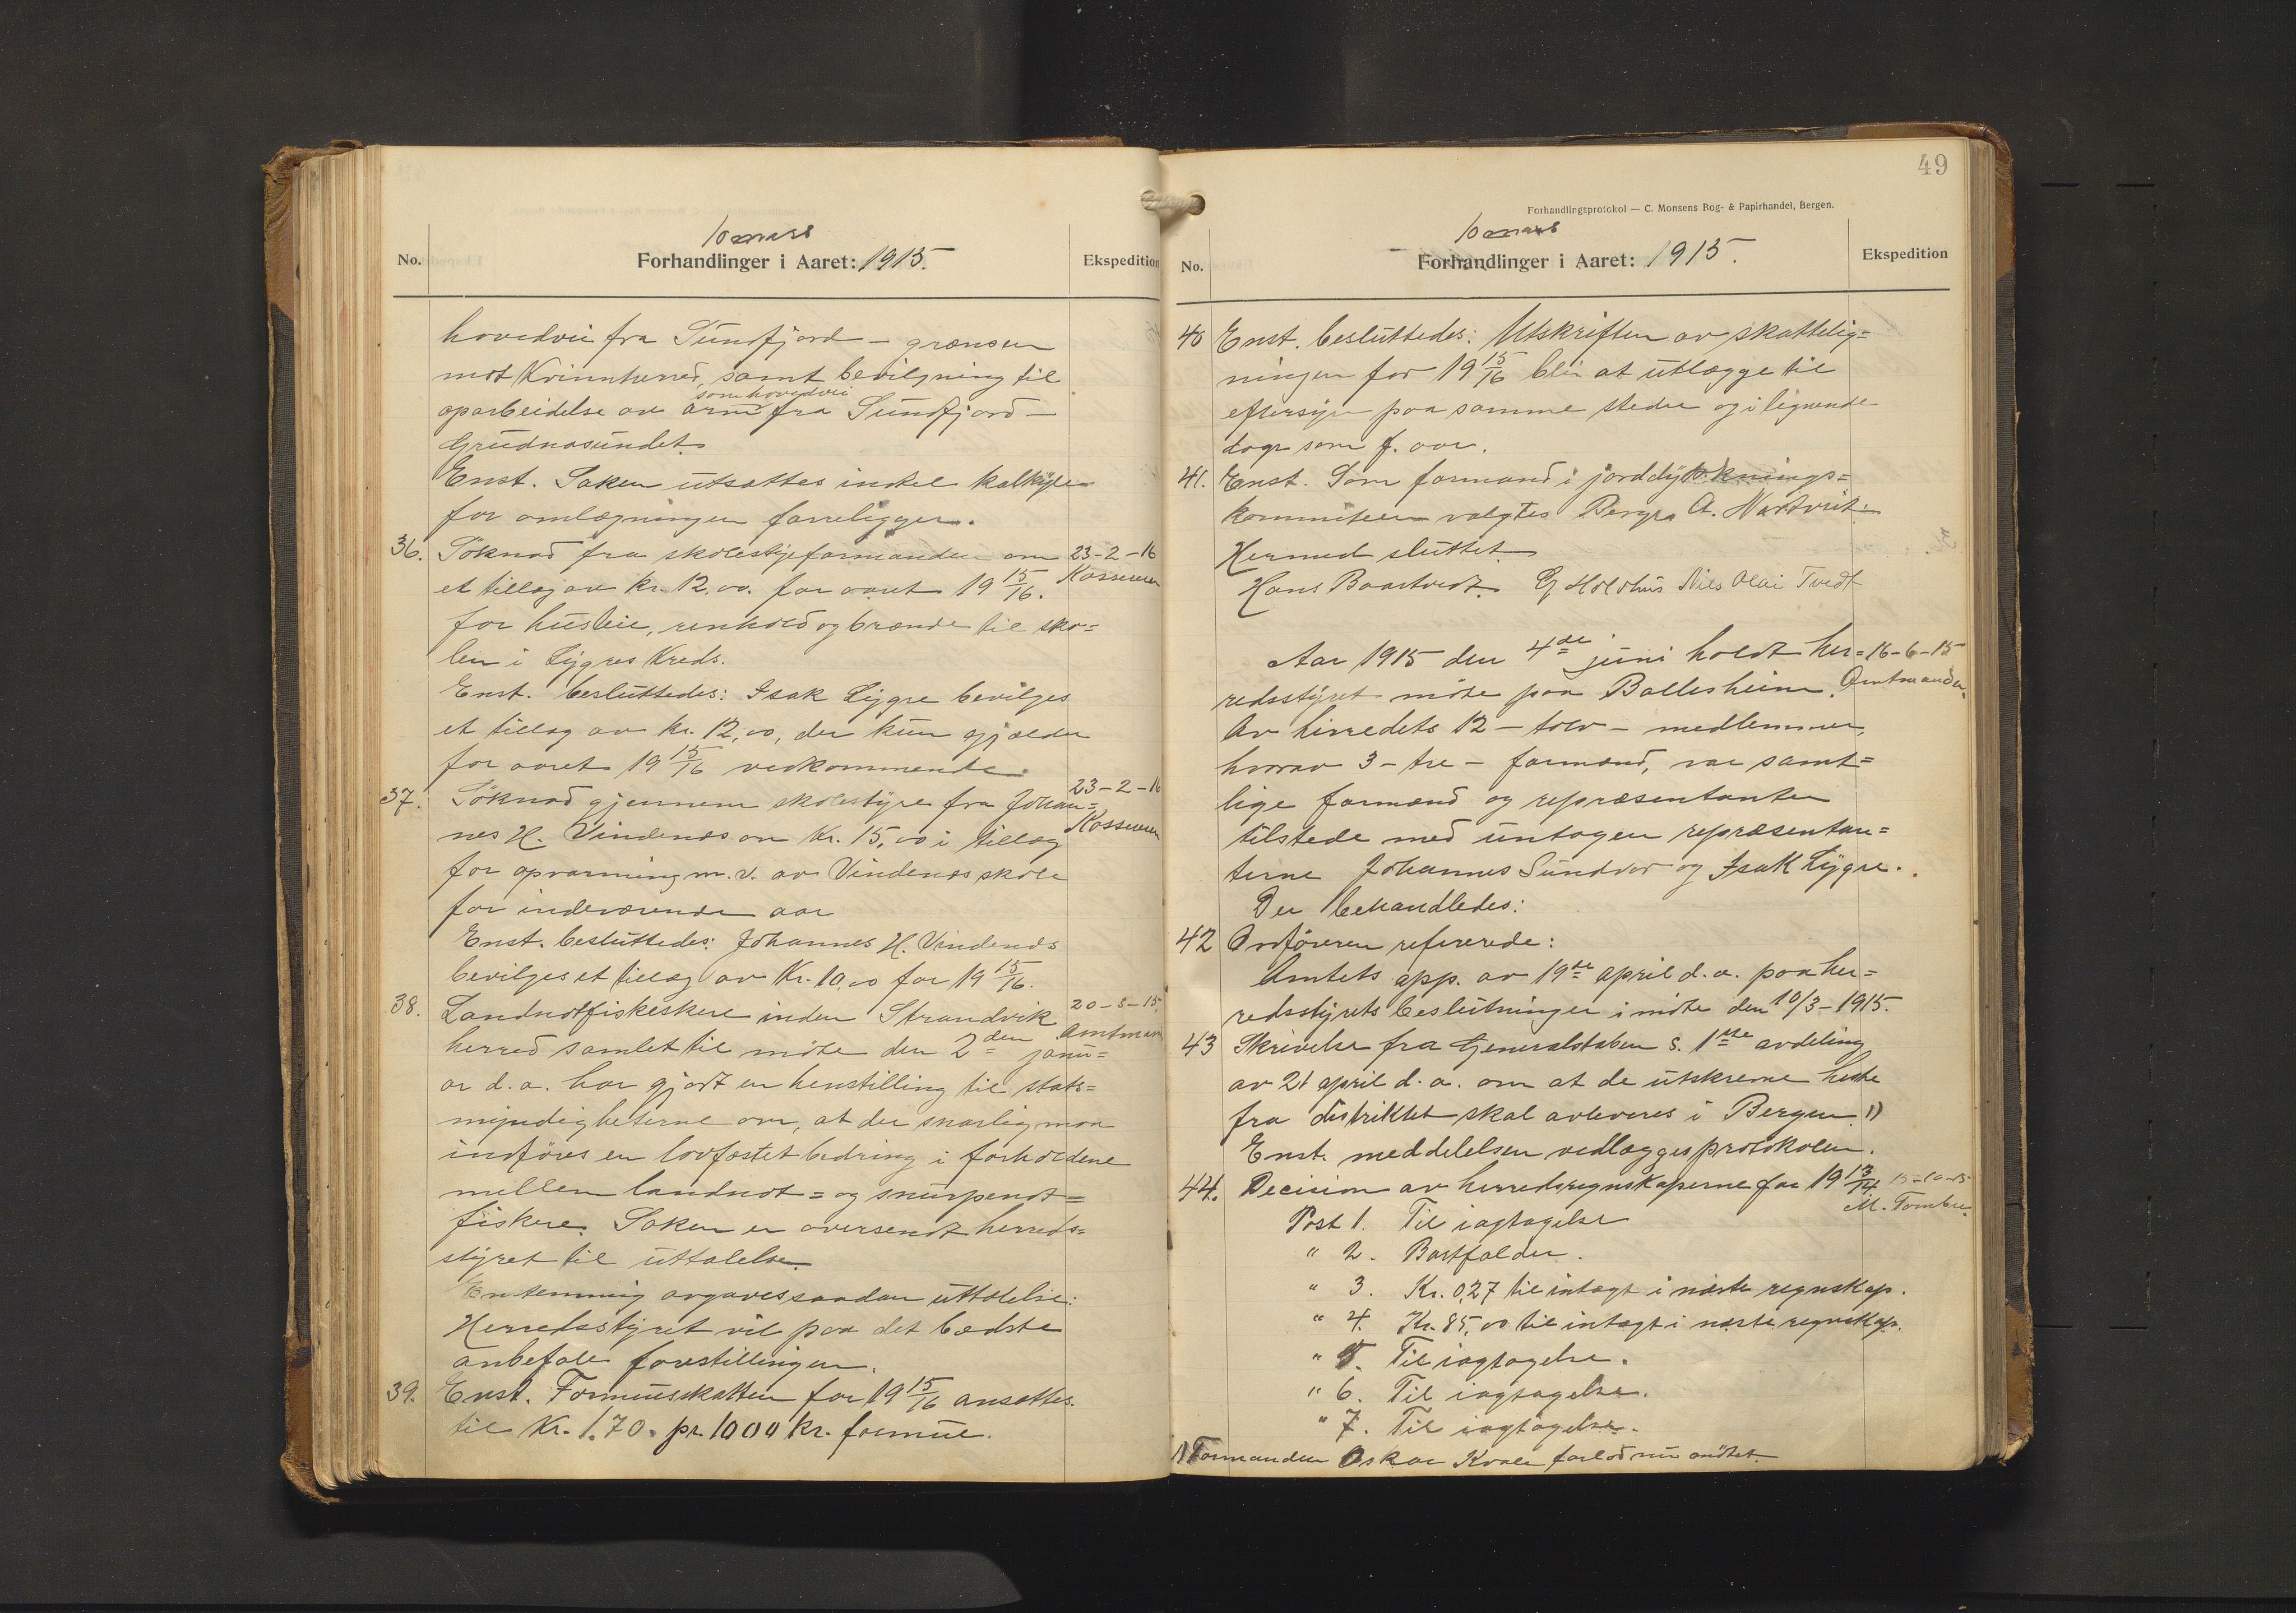 10 mars
No. Forhandlinger i Aaret: 1915. Ekspedition
hovedvei fra Sundfjord – grænsen
mot Kvinnherred, samt bevilgning til
oparbeidelse av arm som hovedvei fra Sundfjord –
Grudnasundet.
Enst. Saken utsættes indtil kalkyle
for omlægningen foreligger.
36. Söknad fra skolestyreformanden om 23-2-16
et tillæg av kr. 12,00. for aaret 19 15/16. Kassereren
for husleie, renhold og brænde til sko=
len i Lygres Kreds.
Enst. besluttedes: Isak Lygre bevilges
et tillæg av kr. 12,00, der kun gjælder
for aaret 19 15/16 vedkommende.
37. Söknad gjennem skolestyre fra Johan= 23-2-16
nes H. Vindenes om Kr. 15,00 i tillæg Kassereren
for opvarming m. v. av Vindenes skole
for indeværende aar
Enst. besluttedes: Johannes H. Vindenes
bevilges et tillæg av Kr. 10,00 for 19 15/16.
38. Landnotfiskeskere inden Strandvik 20-3-15.
herred samlet til möte den 2den janu= Amtmand
ar d. a. har gjort en henstilling til stats=
myndigheterne om, at der snarlig maa
indföres en lovfæstet bedring i forholdene
mellem landnot= og snurpenot=
fiskere. Saken er oversendt herreds=
styret til uttalelse.
Enstemmig avgaves saadan uttalelse:
Herredsstyret vil paa det bedste
anbefale forestillingen.
39. Enst. Formuesskatten for 19 15/16 ansættes
til Kr. 1.70. pr. 1000 kr. formue.
49
Forhandlingsprotokol — C. Monsens Bog- & Papirhandel, Bergen.
10 mars
No. Forhandlinger i Aaret: 1915. Ekspedition
40 Enst. besluttedes: Utskriften av skattelig=
ningen for 19 15/16 blir at utlægge til
eftersyn paa samme steder og i lignende
dage som f. aar.
41. Enst. Som formand i jorddyrknings=
kommiteen valgtes Berge A. Nordtveit.
Hermed sluttet.
Hans Baartvedt. G Holdhus Nils Olai Tvedt
Aar 1915 den 4de juni holdt her= 16-6-15
redsstyret möte paa Ballesheim. Amtmanden.
Av herredets 12 – tolv – medlemmer,
hvorav 3 – tre – formænd, var samt=
lige formænd og repræsentanter
tilstede med untagen repræsentan=
terne Johannes Sundvor og Isak Lygre.
Der behandledes:
42 Ordföreren refererede:
Amtets app. av 19de april d. a. paa her=
redsstyrets beslutninger i möte den 10/3 – 1915.
43 Skrivelse fra Generalstaben s. 1ste avdeling
av 21 april d. a. om at de utskrevne heste
fra distriktet skal avleveres i Bergen. 1)
Enst. meddelelsen vedlægges protokolen.
44. Decision av herredsregnskaperne for 19 13/14 15-10-15
Post 1. Til iagtagelse M. Tombre.
" 2. Bortfalder.
" 3. Kr. 0,27 til intægt i næste regnskap.
" 4. Kr. 85,00 til intægt i næste regnskap.
" 5. Til iagtagelse.
" 6. Til iagtagelse.
" 7. Til iagtagelse.
1) Formanden Oskar Kvale forlod nu mötet.